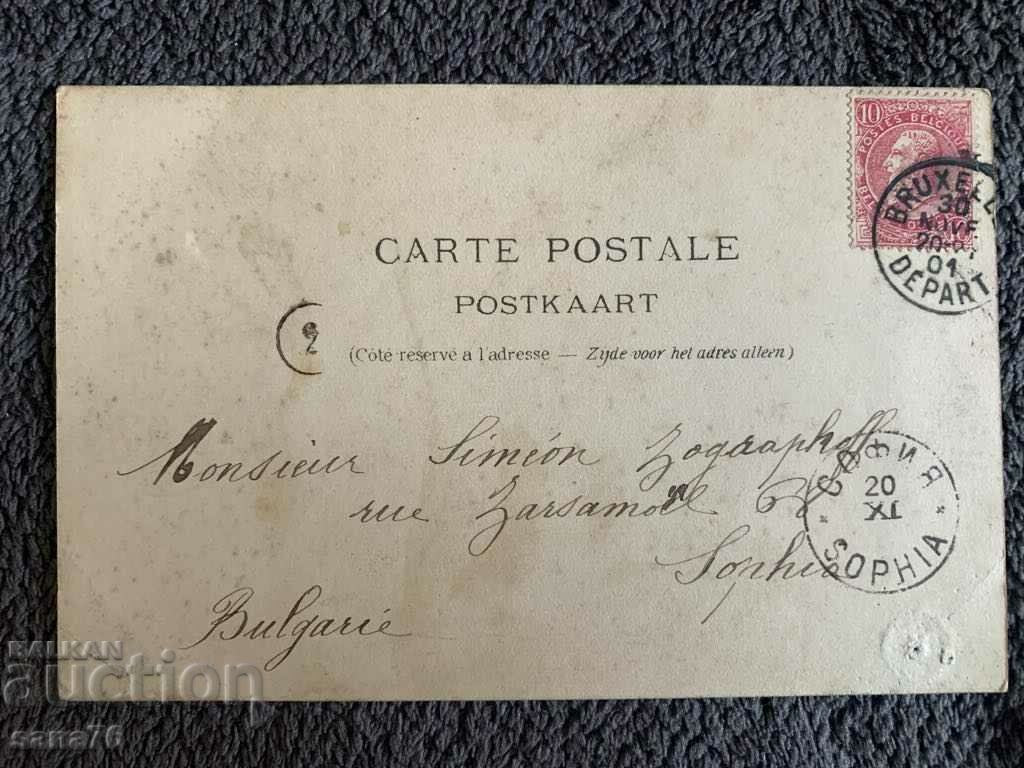 10
POSTES BELGIQUE
BRUXELL
30
NOVE
01
DEPART
CARTE POSTALE
POSTKAART
2
(Côté reservé a l'adresse — Zijde voor het adres alleen)
Monsieur Siméon Zographoff
rue Zarsamoil
Sophia
Bulgarie
СОФИЯ
20
XI
SOPHIA
BALKAN
auction
sana76